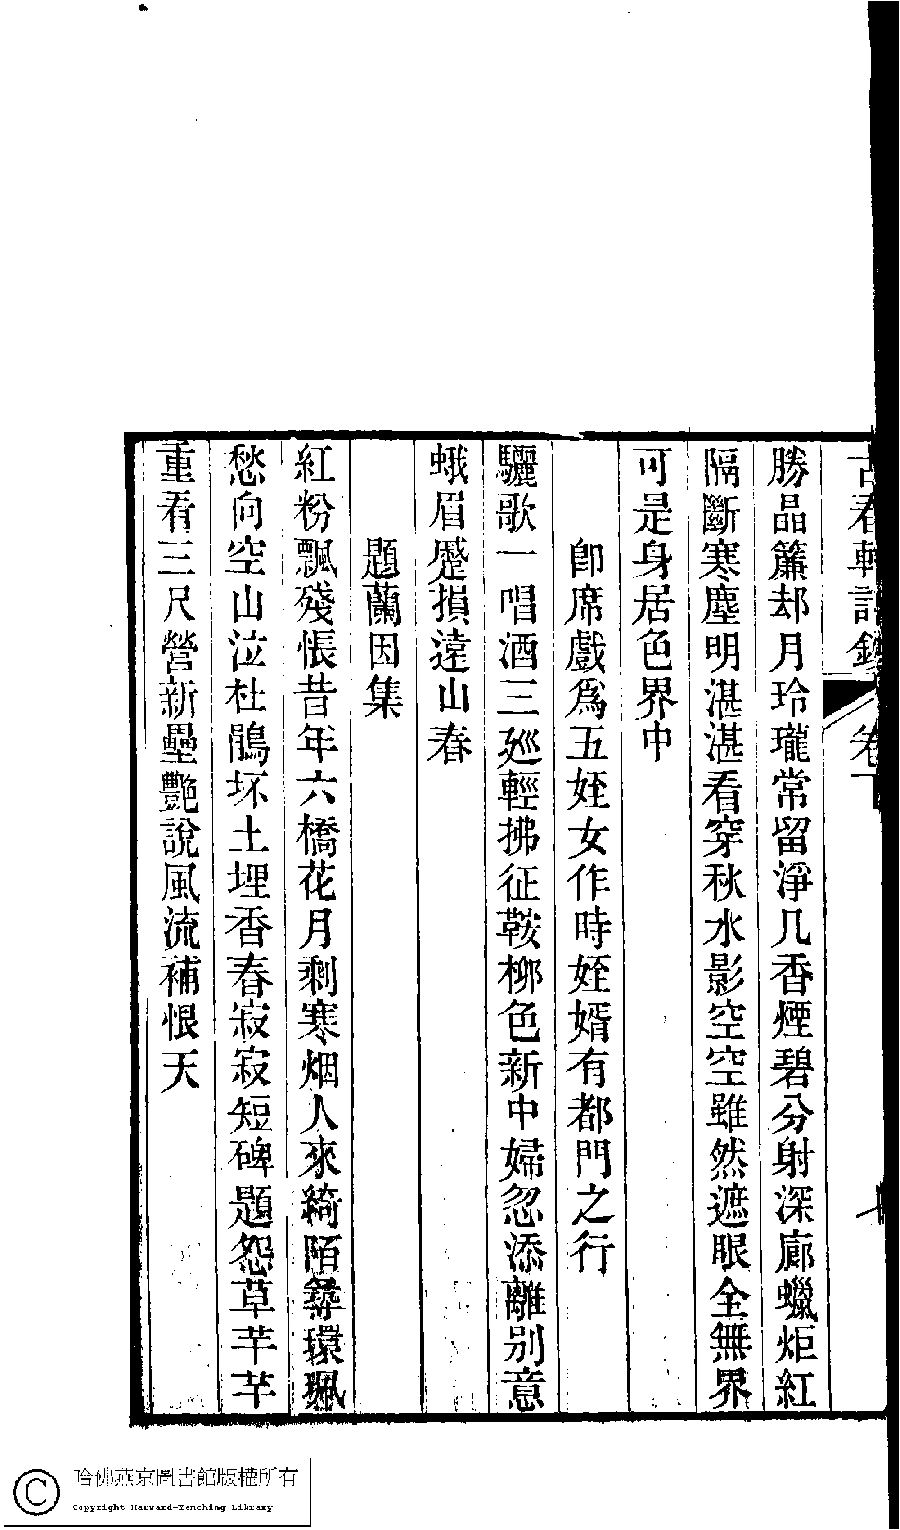 古春軒詩鈔 卷下
勝晶簾却月玲瓏常留淨几香煙碧分射深廊蠟炬紅
隔斷寒塵明湛湛看穿秋水影空空雖然遮眼全無界
可是身居色界中
卽席戲爲五姪女作時姪婿有都門之行
驪歌一唱酒三廵輕拂征鞍栁色新中婦忽添離别意
蛾眉蹙損遠山春
題蘭因集
紅粉飄殘悵昔年六橋花月剩寒烟人來綺陌尋環珮
愁向空山泣杜鵑坏土埋香春寂寂短碑題怨草芊芊
重看三尺營新壘艷說風流補恨天
哈佛燕京圖書館版權所有
Copyright Harvard-Yenching Library